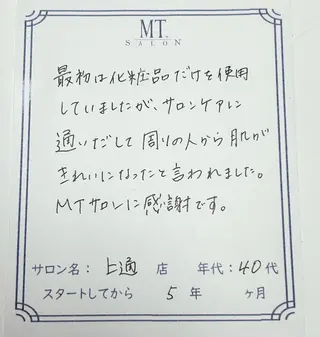 MT.
SALON
最初は化粧品だけを使用
していましたが、サロンケアに
通いだして周りの人から肌が
きれいになったと言われました。
MTサロンに感謝です。
サロン名：上通 店 年代：40代
スタートしてから 5 年 ヶ月